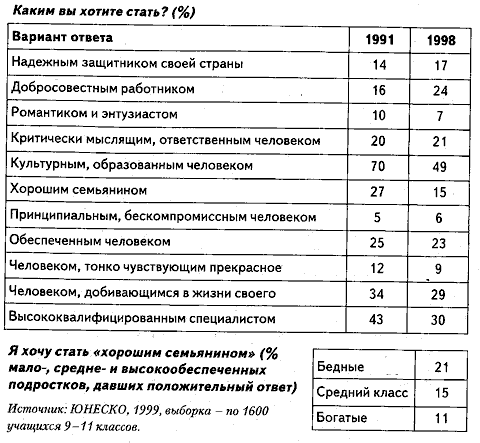 Каким вы хотите стать? (%)
Вариант ответа 1991 1998
Надежным защитником своей страны 14 17
Добросовестным работником 16 24
Романтиком и энтузиастом 10 7
Критически мыслящим, ответственным человеком 20 21
Культурным, образованным человеком 70 49
Хорошим семьянином 27 15
Принципиальным, бескомпромиссным человеком 5 6
Обеспеченным человеком 25 23
Человеком, тонко чувствующим прекрасное 12 9
Человеком, добивающимся в жизни своего 34 29
Высококвалифицированным специалистом 43 30
Я хочу стать «хорошим семьянином» (%
мало-, средне- и высокообеспеченных
подростков, давших положительный ответ)
Источник: ЮНЕСКО, 1999, выборка – по 1600
учащихся 9–11 классов.
Бедные 21
Средний класс 15
Богатые 11